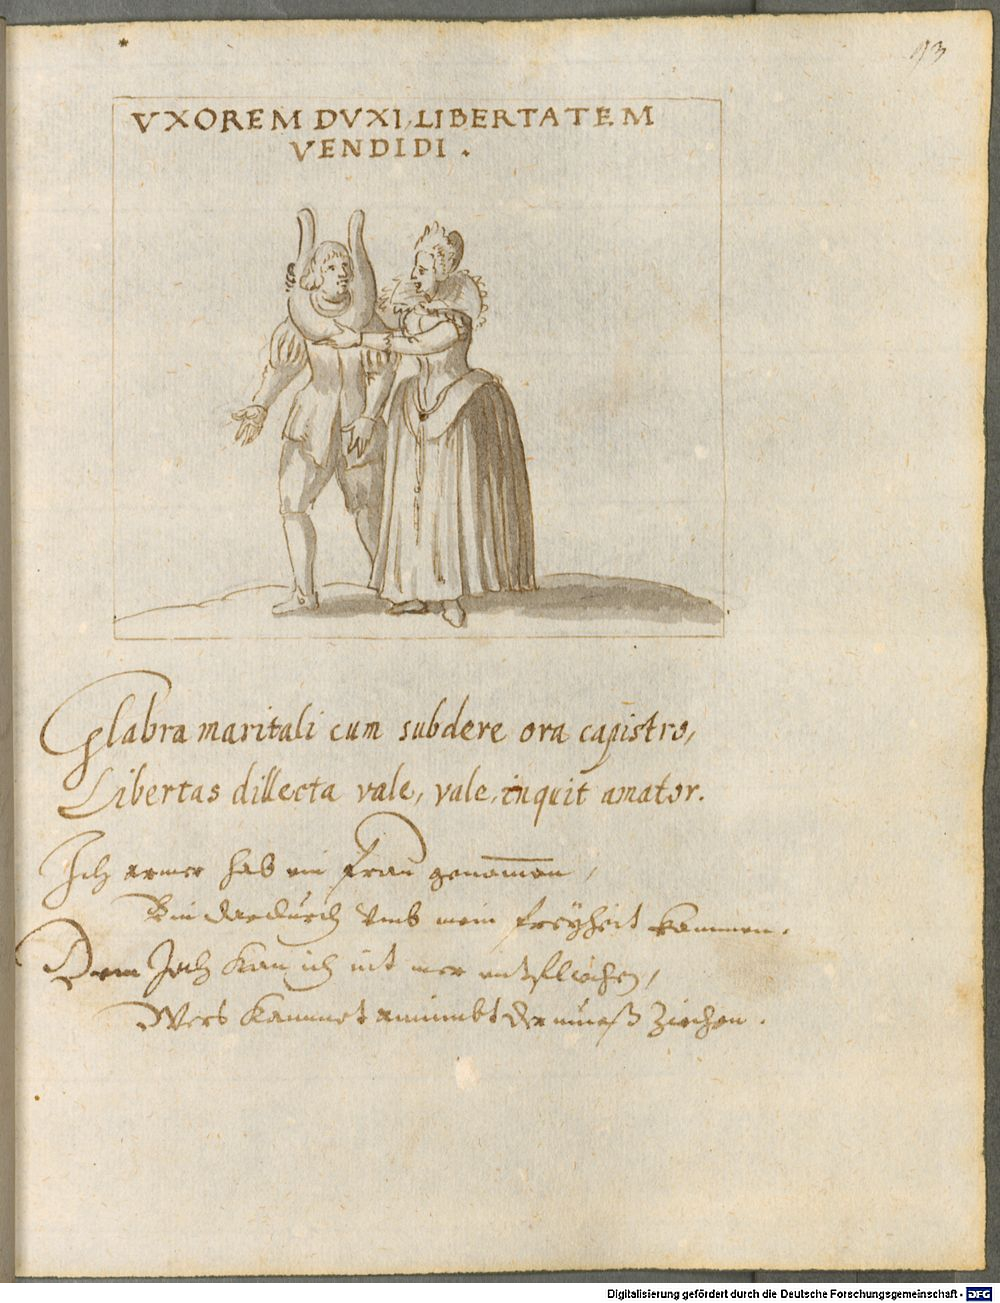 93
VXOREM DVXI, LIBERTATEM
VENDIDI .
Glabra maritali cum subdere ora capistro,
Libertas dillecta vale, vale, inquit amator.
Ich armer hab ein Frau genomen,
Bin dardurch vmb mein freÿheit kommen.
Dem Joch kan ich nit mer entfliechen,
Wers Kommet der mueß ziechen.
Digitalisierung gefördert durch die Deutsche Forschungsgemeinschaft - DFG